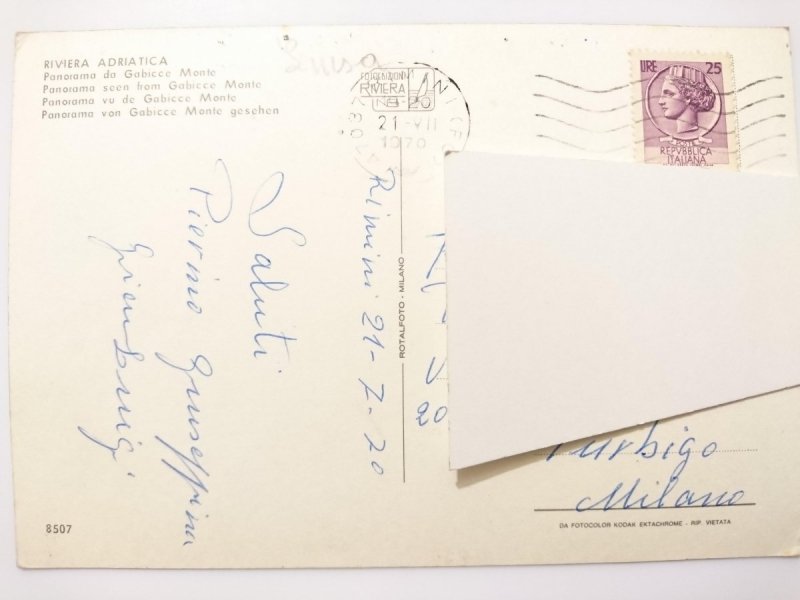 RIVIERA ADRIATICA
Panorama da Gabicce Monte
Panorama seen from Gabicce Monte
Panorama vu de Gabicce Monte
Panorama von Gabicce Monte gesehen
Luisa
RIVIERA
21-VII
1970
LIRE 25
POSTE
REPVBBLICA
ITALIANA
Rimini 21-7-70
Saluti
Pierino Giuseppina
Gian Luigi
ROTALFOTO - MILANO
20
Turbigo
Milano
8507
DA FOTOCOLOR KODAK EKTACHROME - RIP. VIETATA